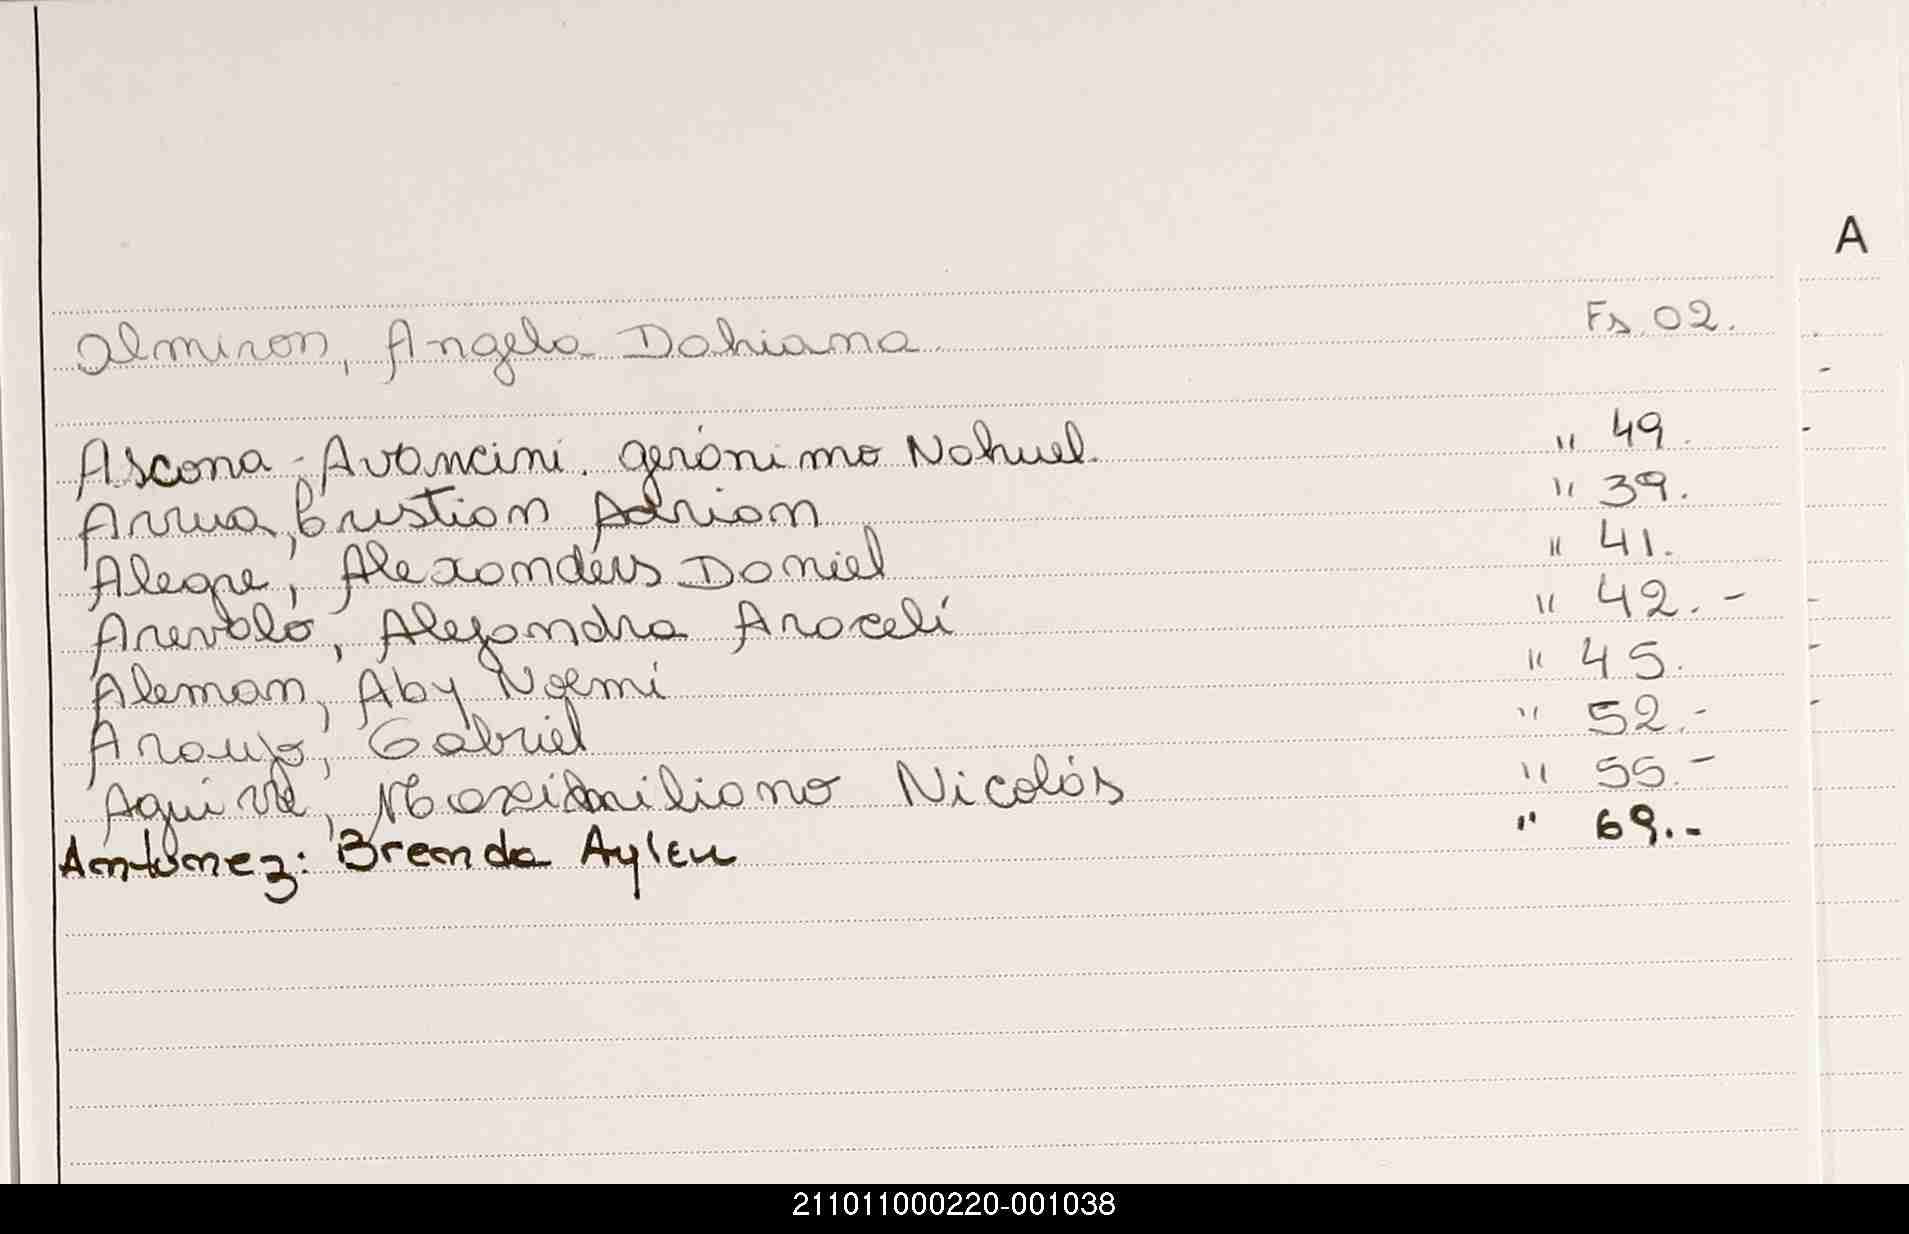 A
Almiron, Angela Dahiana. Fs. 02.
Ascona - Avancini. Gerónimo Nahuel. " 49.
Arrua, Cristian Adrian " 39.
Alegre, Alexanders Daniel " 41.
Arevalo, Alejandra Araceli " 42.-
Aleman, Aby Noemi " 45.
Araujo, Gabriel " 52.-
Aguirre, Maximiliano Nicolás " 55.-
Antunez: Brenda Aylen " 69.-
211011000220-001038